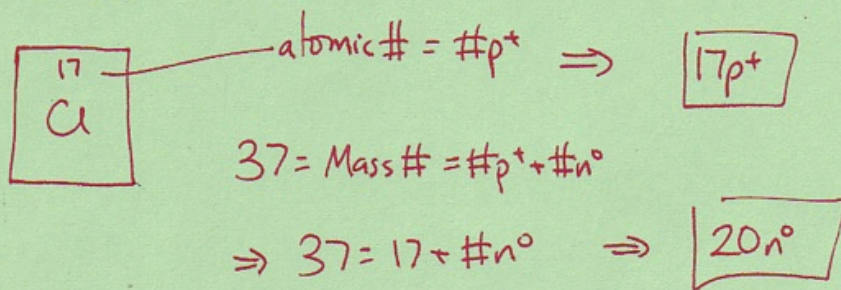 17
Cl
atomic # = #p⁺ ⇒ 17p⁺
37 = Mass # = #p⁺ + #n⁰
⇒ 37 = 17 + #n⁰ ⇒ 20n⁰